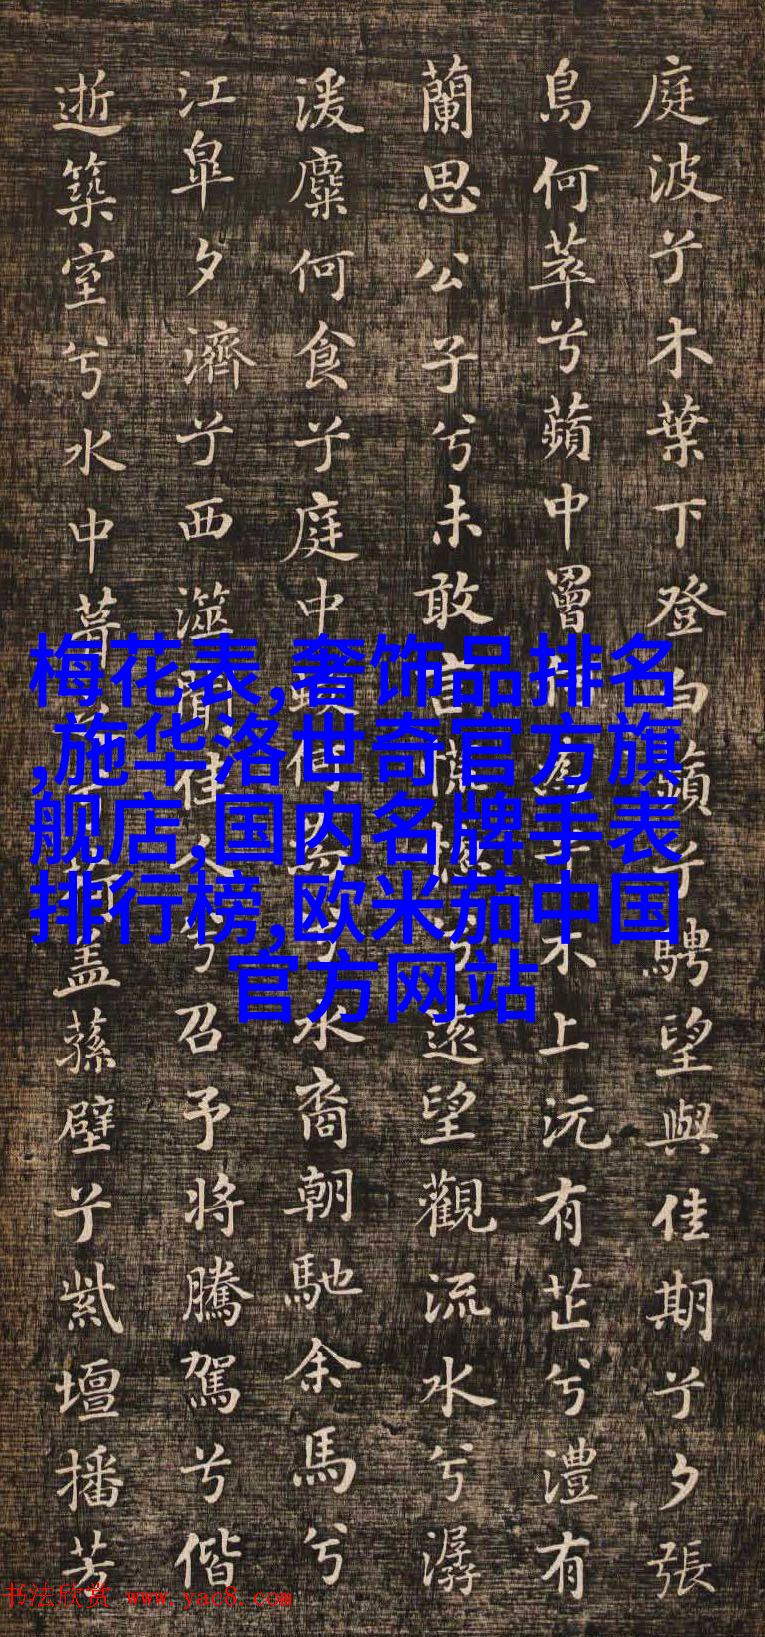 庭波兮木葉下登白蘋兮騁望與佳期兮夕張
鳥何萃兮蘋中罾何為兮木上沅有芷兮澧有
蘭思公子兮未敢言慌惚兮遠望觀流水兮潺
湲麋何食兮庭中蛟何為兮水裔朝馳余馬兮
江皐夕濟兮西澨聞佳人兮召予將騰駕兮偕
逝築室兮水中葺之兮荷盖蓀壁兮紫壇播芳
梅花表,奢饰品排名
,施华洛世奇官方旗
舰店,国内名牌手表
排行榜,欧米茄中国
官方网站
书法欣赏 www.yac8.com